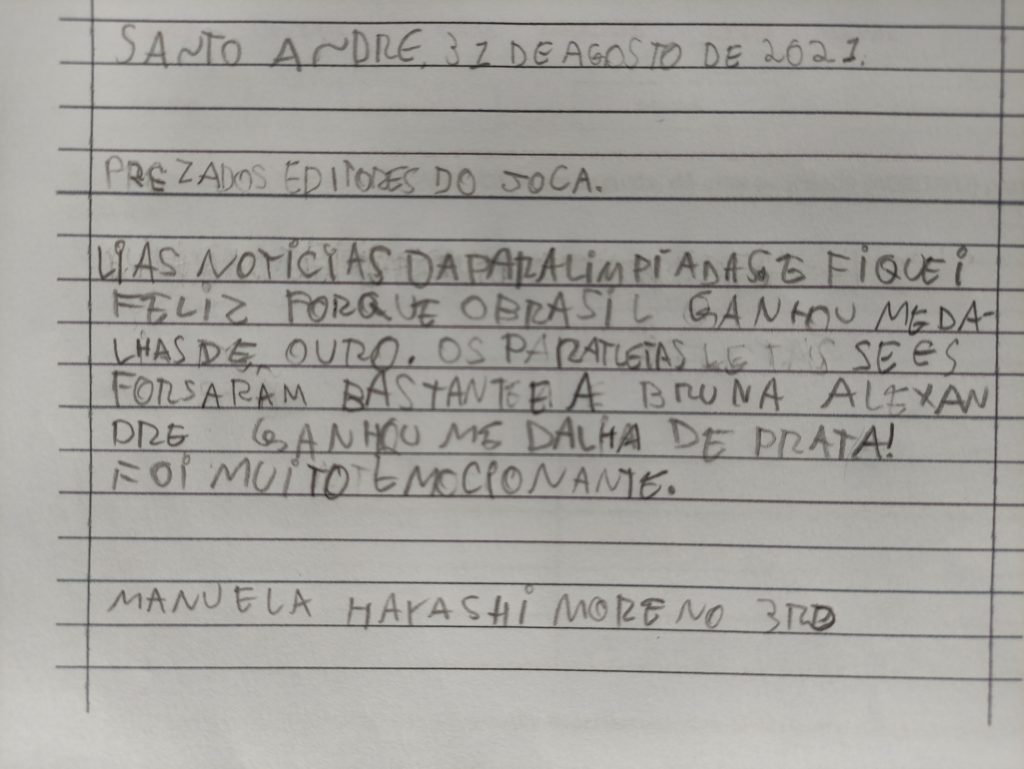 SANTO ANDRE, 31 DE AGOSTO DE 2021.
PREZADOS EDITORES DO JOCA.
LI AS NOTÍCIAS DA PARALIMPÍADAS E FIQUEI
FELIZ PORQUE O BRASIL GANHOU MEDA-
LHAS DE OURO. OS PARATLETAS SE ES
FORSARAM BASTANTE E A BRUNA ALEXAN
DRE GANHOU MEDALHA DE PRATA!
FOI MUITO EMOCIONANTE.
MANUELA HAYASHI MORENO 3RD